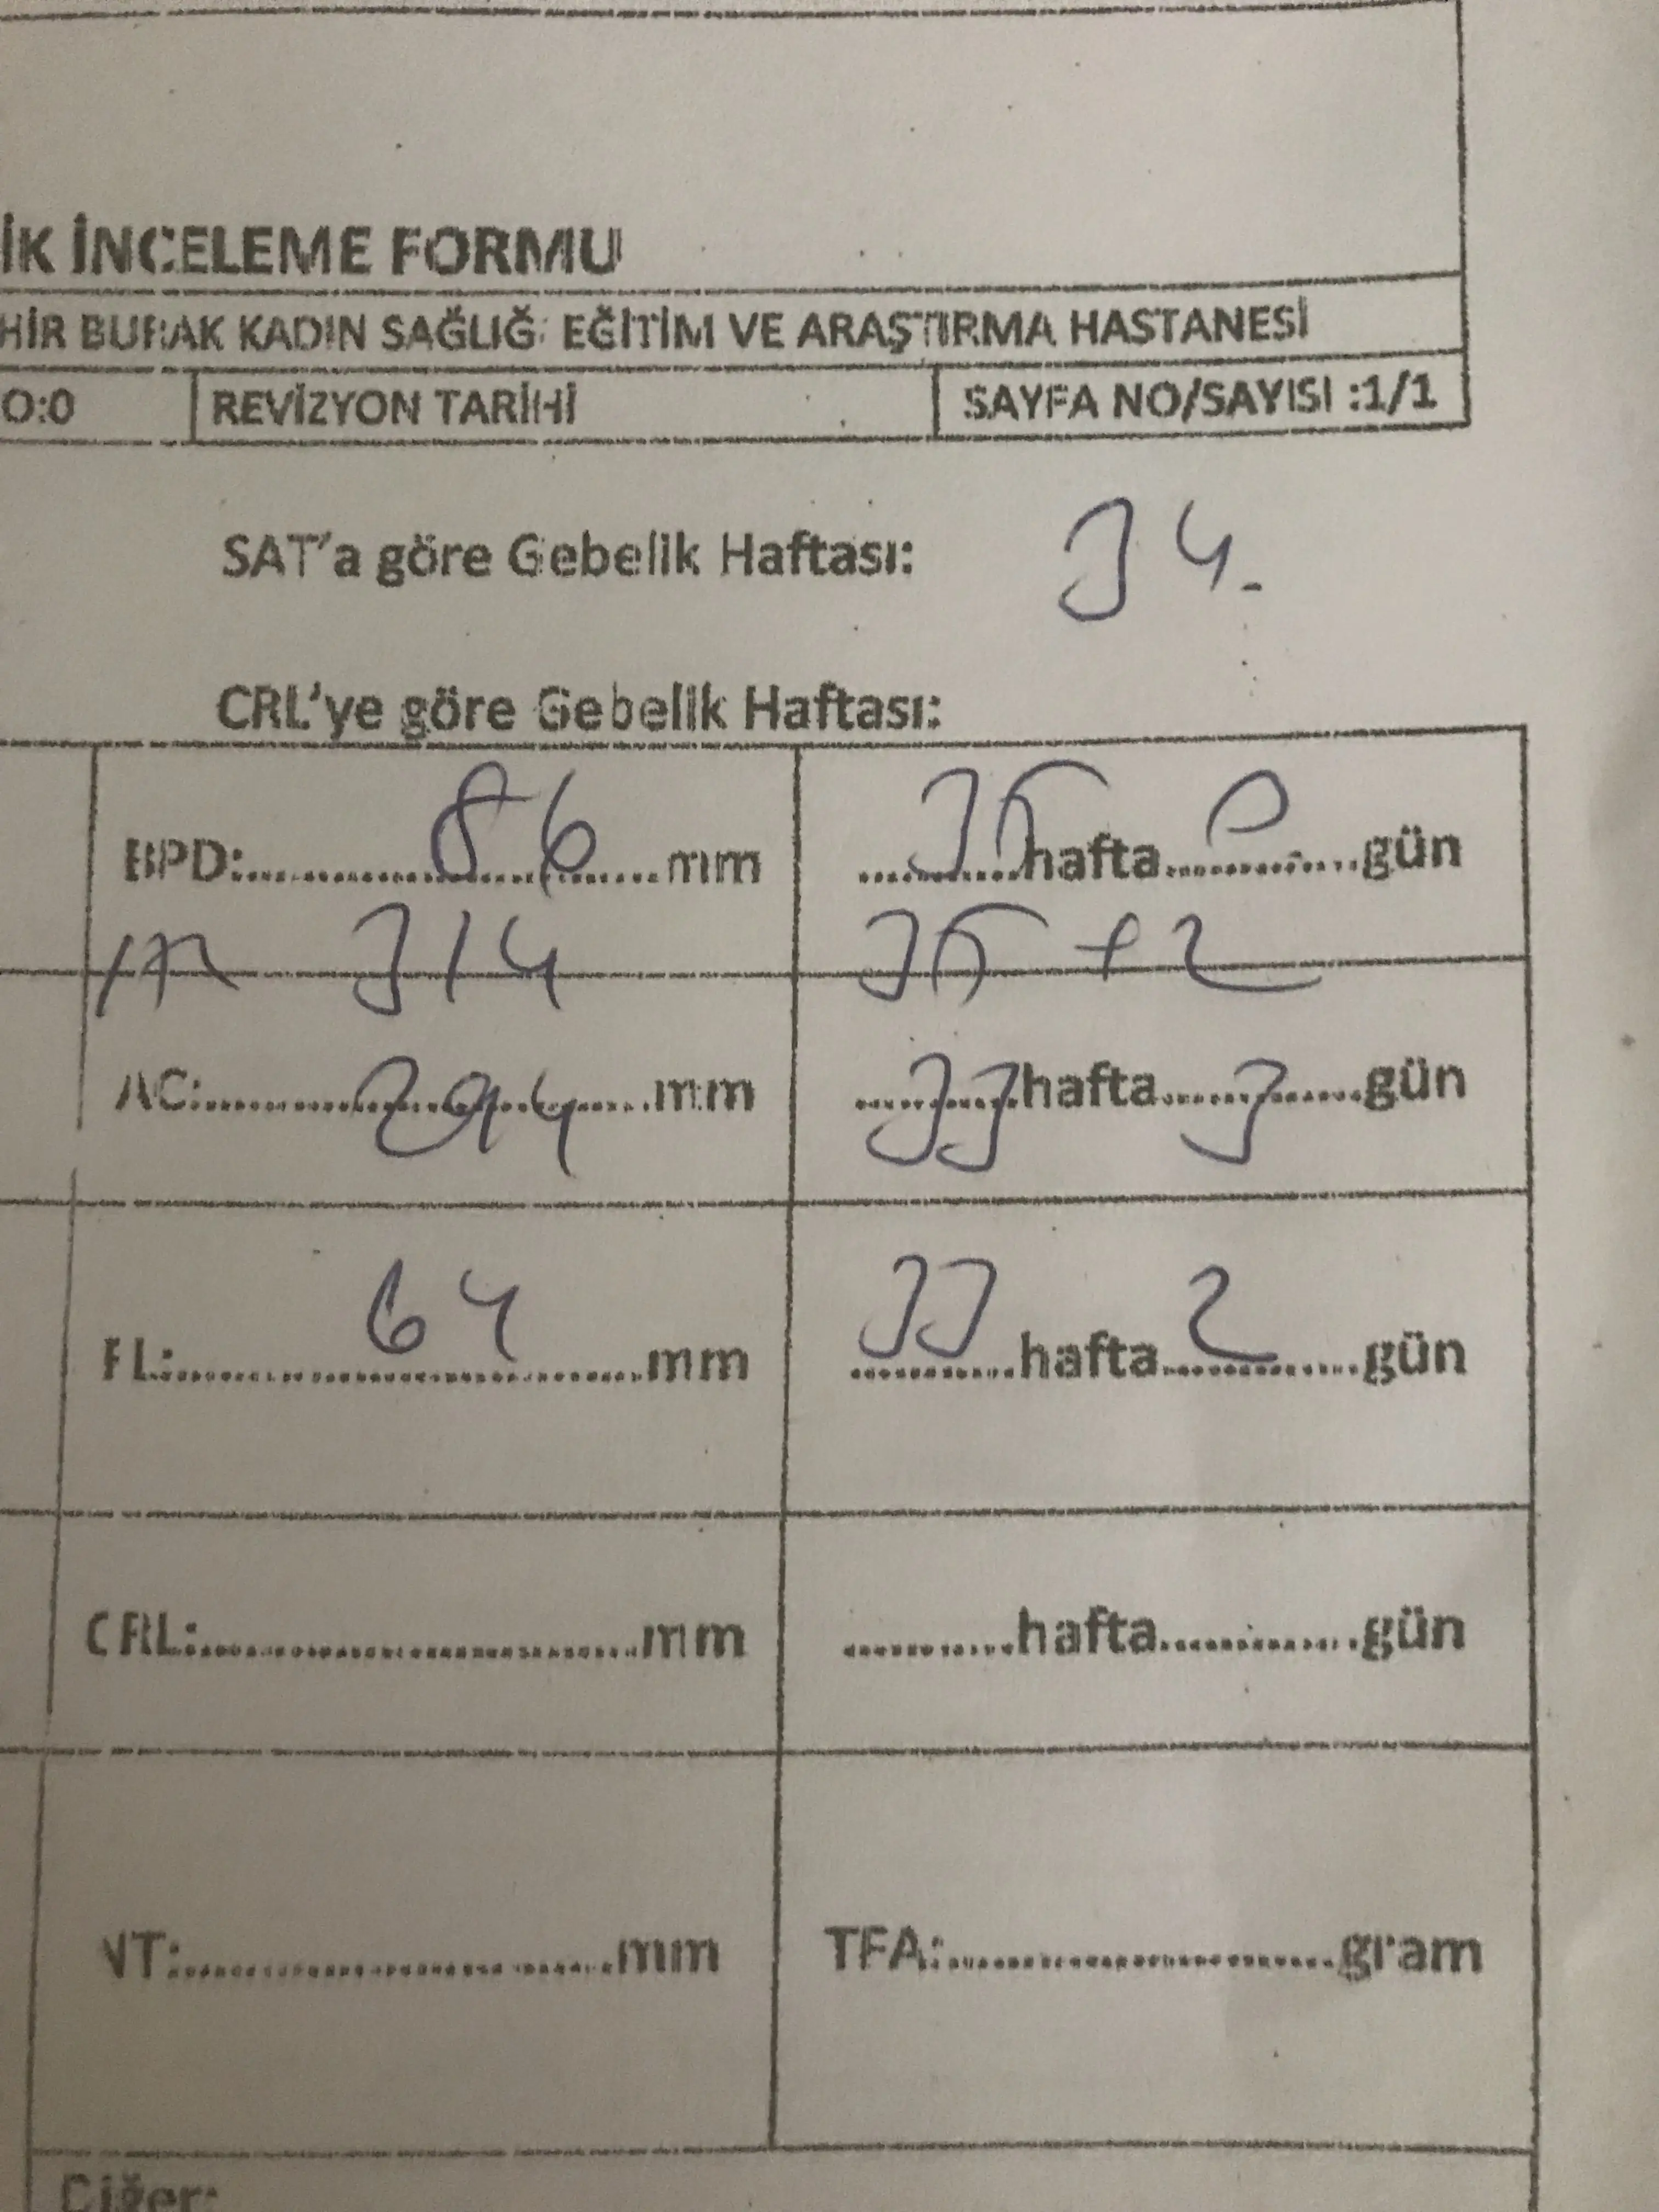 İK İNCELEME FORMU
HİR BURAK KADIN SAĞLIĞI EĞİTİM VE ARAŞTIRMA HASTANESİ
O:0 REVİZYON TARİHİ SAYFA NO/SAYISI :1/1
SAT'a göre Gebelik Haftası: 34.
CRL'ye göre Gebelik Haftası:
BPD:..........86..........mm ..........35hafta..........0..........gün
314 35 + 2
AC:..........294..........mm ..........33hafta..........3..........gün
FL:..........64..........mm ..........33hafta..........2..........gün
CRL:..............................mm ..........hafta..............gün
NT:..............................mm TFA:..............................gram
Diğer: